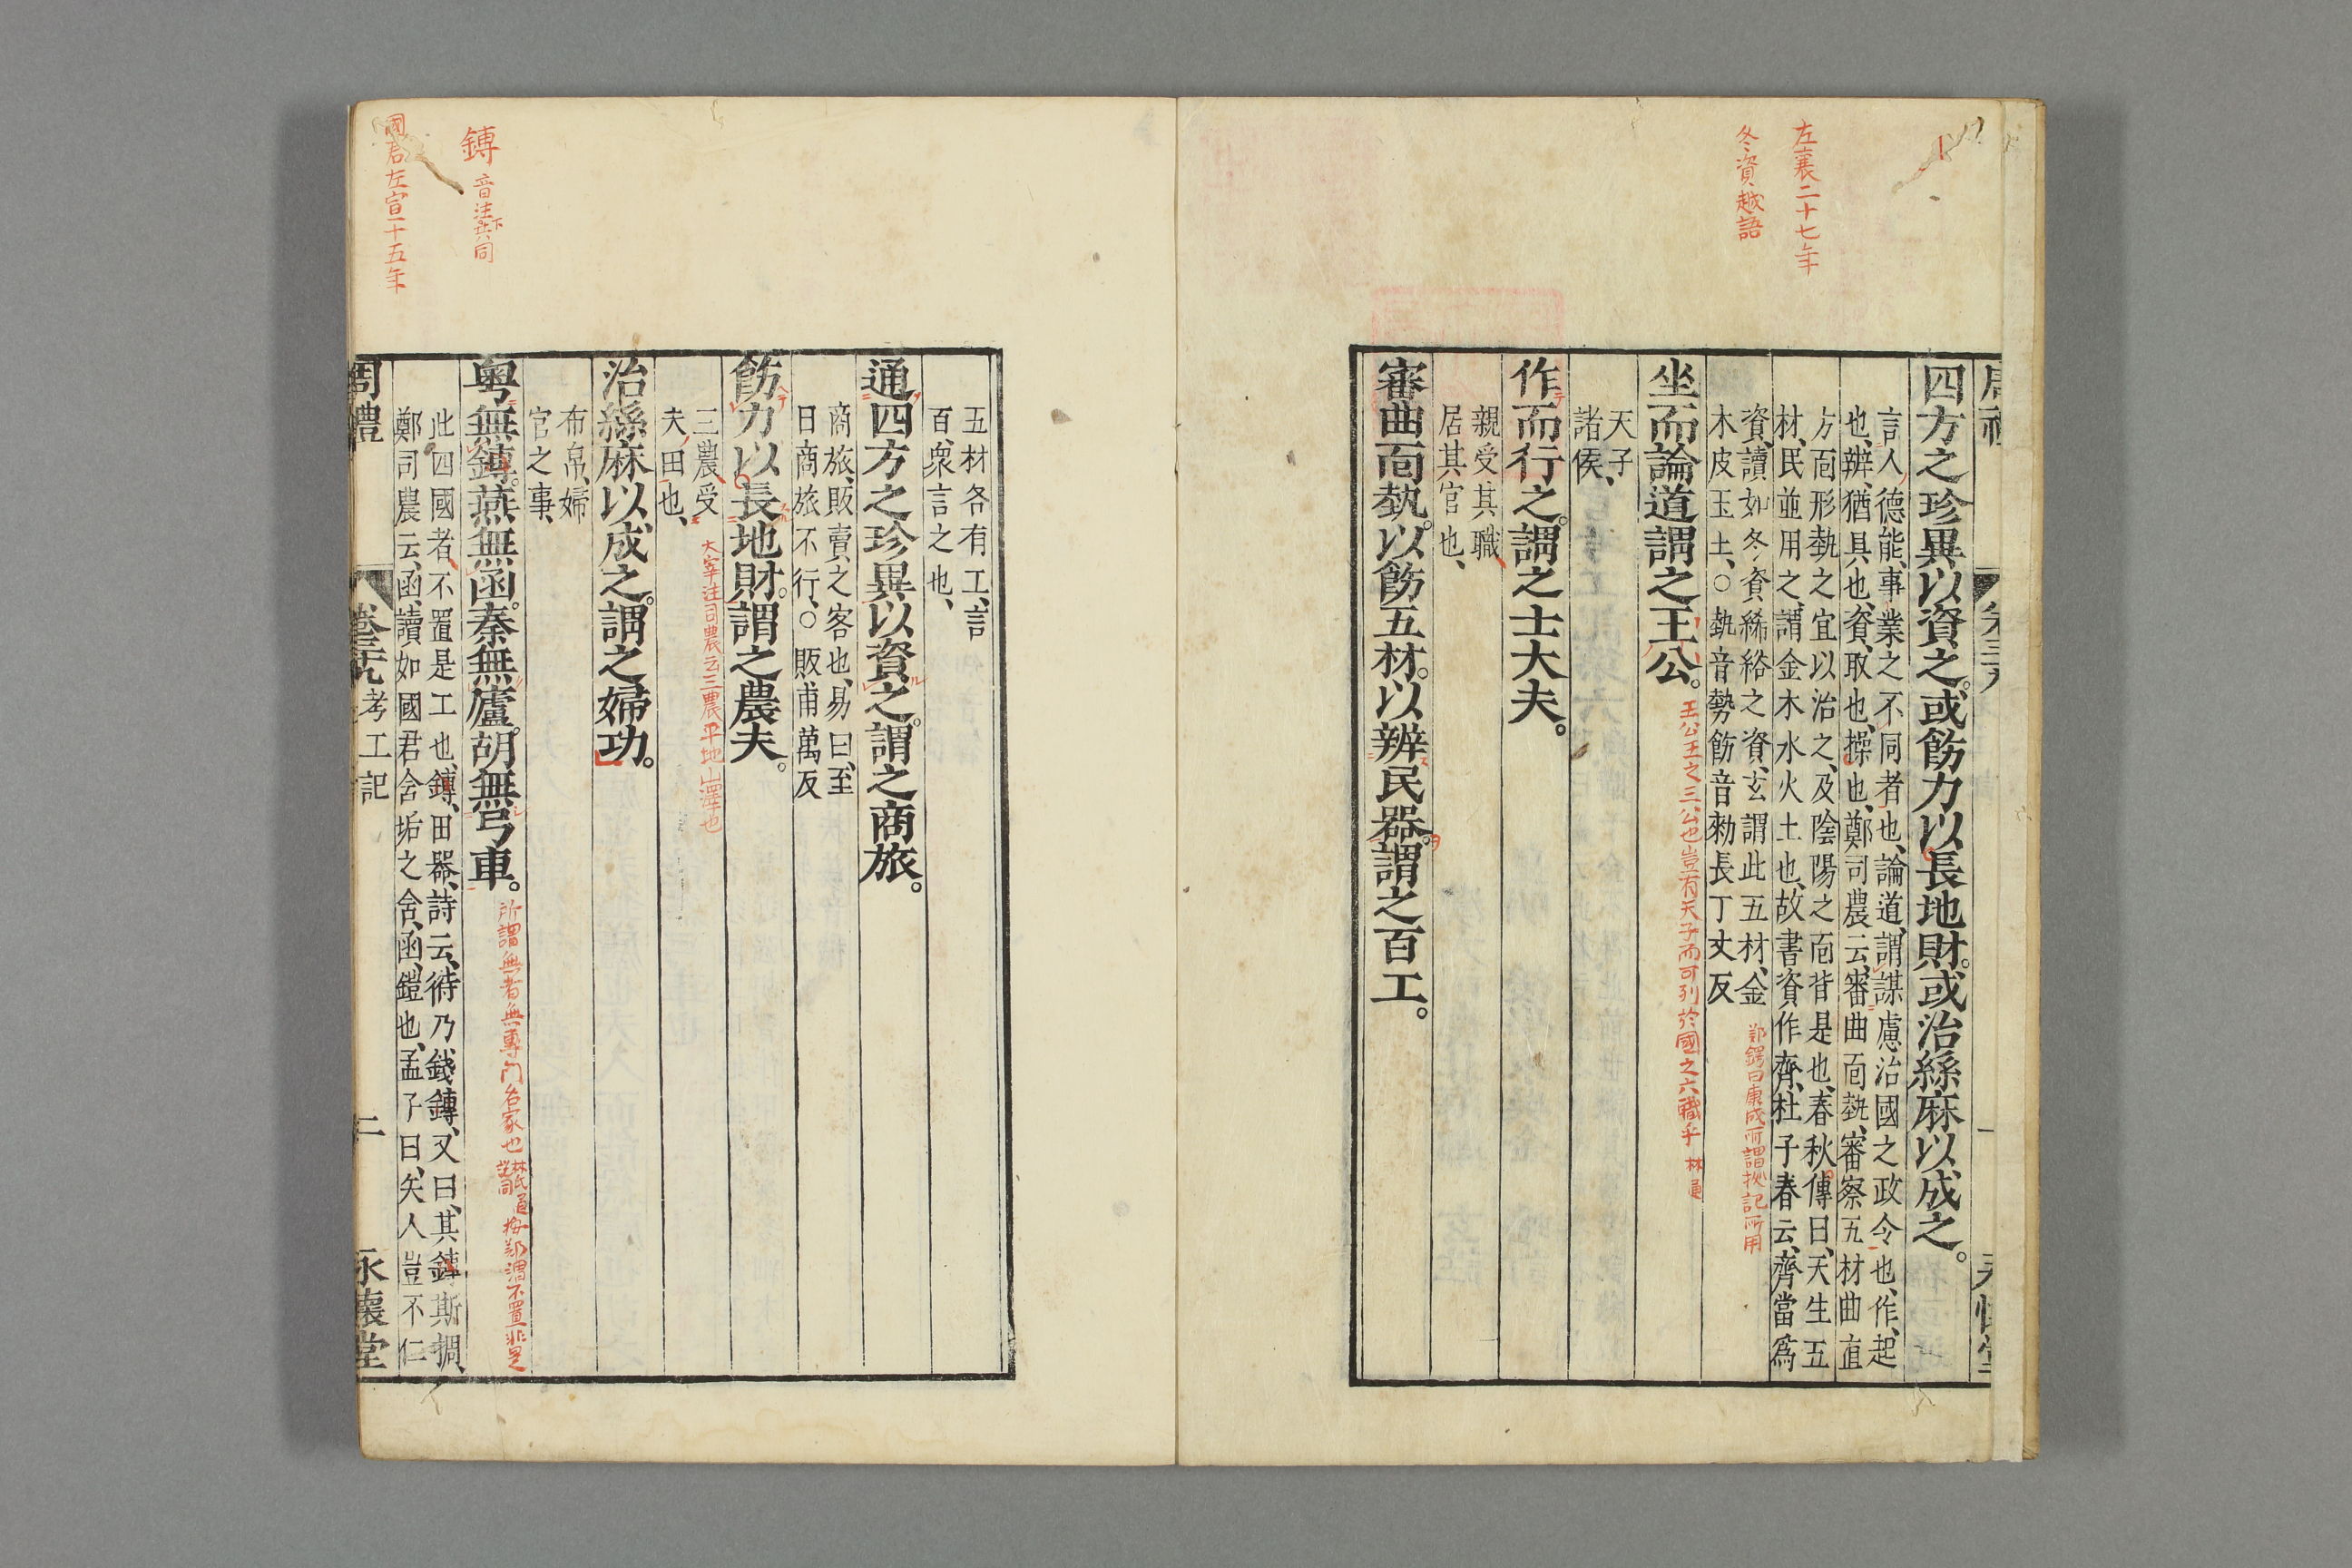 左襄二十七年
冬資越語
四方之珍異以資之。或飭力以長地財。或治絲麻以成之。
言人德能、事業之不同者也、論道、謂謀慮治國之政令也、作、起
也、辨、猶具也、資、取也、操也、鄭司農云、審曲面埶、審察五材曲直
方面形埶之宜以治之、及陰陽之面背是也、春秋傳曰、天生五
材、民並用之、謂金木水火土也、故書資作齊、杜子春云、齊當爲
資、讀如冬資絺綌之資、玄謂此五材、金
木皮玉土、○埶音勢飭音勑長丁丈反
鄭鍔曰康成所謂攷記所用
坐而論道謂之王公。
王公王之三公也豈有天子而可列於國之六職乎 林
天子
諸侯、
作而行之。謂之士大夫。
親受其職
居其官也、
審曲面埶。以飭五材。以辨民器。謂之百工。
五材各有工、言
百、衆言之也、
通四方之珍異以資之。謂之商旅。
商旅、販賣之客也、易曰、至
日商旅不行、○販甫萬反
飭力以長地財。謂之農夫。
三農受
夫、田也、
大宰注司農云三農平地山澤也
治絲麻以成之。謂之婦功。
布帛、婦
官之事、
鎛 音注下共同
粵無鎛。燕無函。秦無廬。胡無弓車。
所謂無者無專門名家也 按鄭謂不置非是
國君左宣十五年
此四國者、不置是工也、鎛、田器、詩云、偫乃錢鎛、又曰、其鎛斯搁、
鄭司農云、函、讀如國君含垢之含、函、鎧也、孟子曰、矢人豈不仁
周禮 卷三九 考工記 二 永懷堂